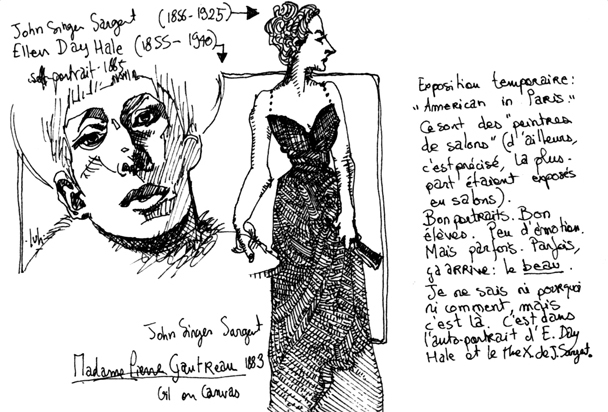 John Singer Sargent (1856-1925)
Ellen Day Hale (1855-1940)
self portrait 1885
luh
John Singer Sargent
Madame Pierre Gautreau 1883
Oil on Canvas
Exposition temporaire:
"American in Paris."
Ce sont des "peintres
de salons" (d'ailleurs,
c'est précisé, la plus-
part étaient exposés
en salons).
Bon portraits. Bon
élèves. Peu d'émotion.
Mais parfois. Parfois,
ça ARRIVE: le beau.
Je ne sais ni pourquoi
ni comment, mais
c'est là. C'est dans
l'auto-portrait d'E. Day
Hale et le Mme X. de J. Sargent.